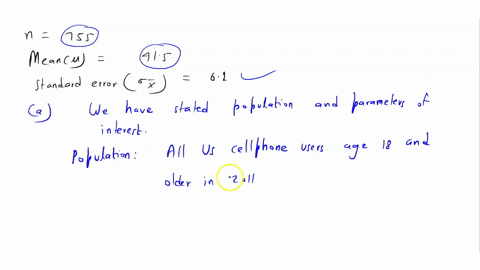 n = 755
Mean(μ) = 41.5
Standard error (σx̄) = 6.1
(a) We have stated population and parameters of
interest.
Population: All Us cellphone users age 18 and
older in 2011